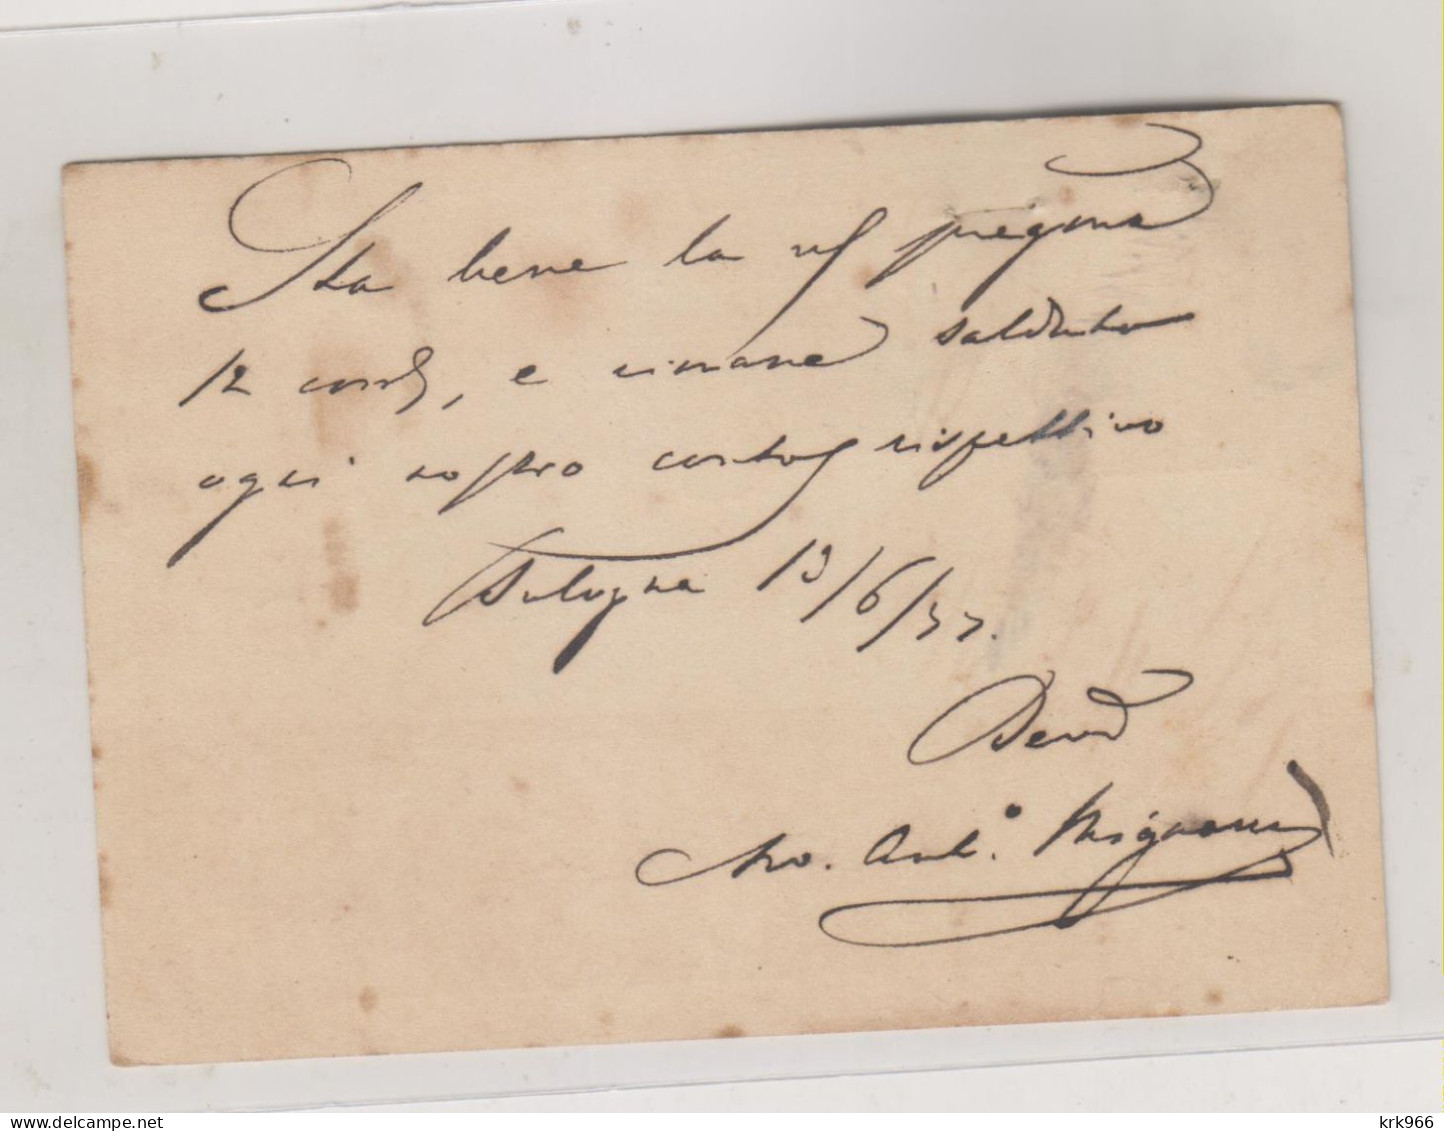 Sta bene la vs/
12 cor, e rimane saldato
ogni nostro conto rispettivo
Bologna 13/6/77.
Dev
Avo. Anto. Mignani
delcampe.net
krk966